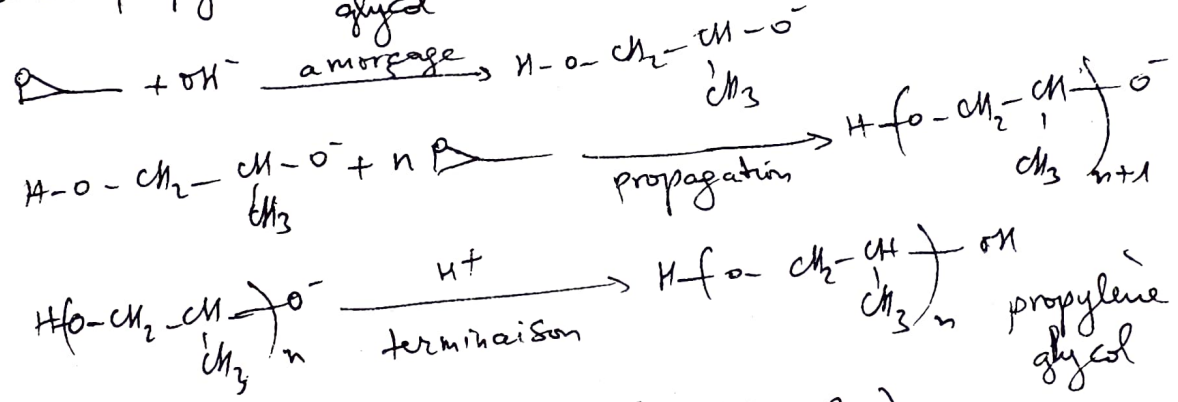 glycol
+ OH⁻ amorçage → H-O-CH₂-CH-O⁻
CH₃
H-O-CH₂-CH-O⁻ + n propagation → H-(O-CH₂-CH-)ₙ₊₁ O⁻
CH₃ CH₃
H(O-CH₂-CH-)ₙ O⁻ H⁺ terminaison → H-(O-CH₂-CH-)ₙ OH
CH₃ CH₃
propylène
glycol